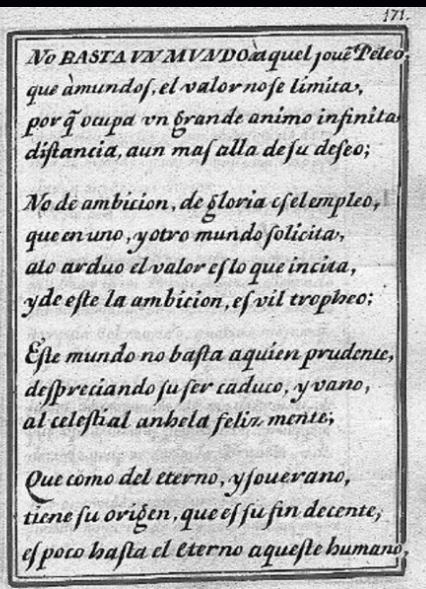 171.
No BASTA VN MVNDO à aquel jouē Peleo,
que à mundos, el valor no se limita,
por q̃ ocupa vn grande animo infinita
distancia, aun mas alla de su deseo;
No de ambicion, de gloria es el empleo,
que en uno, y otro mundo solicita,
alo arduo el valor es lo que incita,
y de este la ambicion, es vil tropheo;
Este mundo no basta aquien prudente,
despreciando su ser caduco, y vano,
al celestial anhela feliz mente;
Que como del eterno, y souerano,
tiene su origen, que es su fin decente,
es poco hasta el eterno aqueste humano,